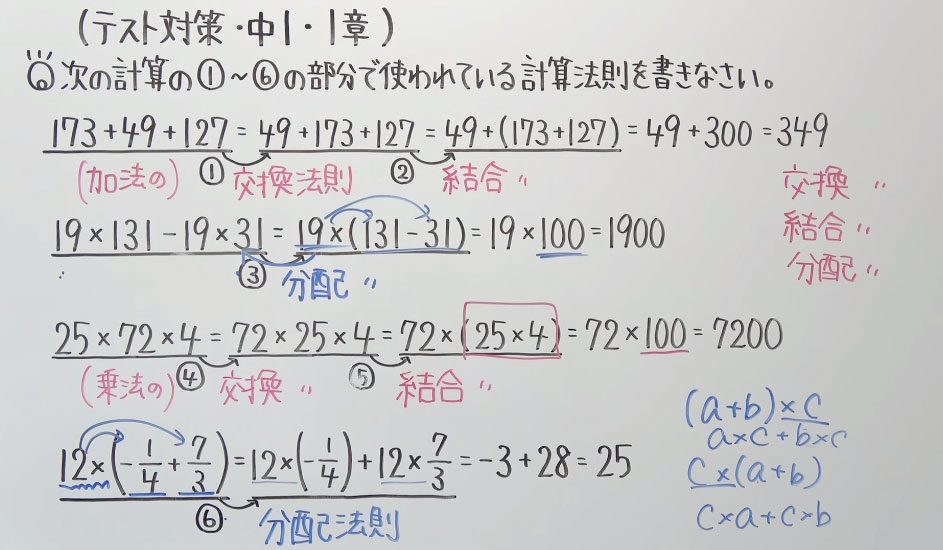 (テスト対策・中1・1章)
Q次の計算の①～⑥の部分で使われている計算法則を書きなさい。
173+49+127=49+173+127=49+(173+127)=49+300=349
(加法の) ① 交換法則 ② 結合〃
交換〃
結合〃
分配〃
19×131-19×31=19×(131-31)=19×100=1900
③ 分配〃
25×72×4=72×25×4=72×(25×4)=72×100=7200
(乗法の) ④ 交換〃 ⑤ 結合〃
12×(-1/4+7/3)=12×(-1/4)+12×7/3=-3+28=25
⑥ 分配法則
(a+b)×c
a×c+b×c
c×(a+b)
c×a+c×b